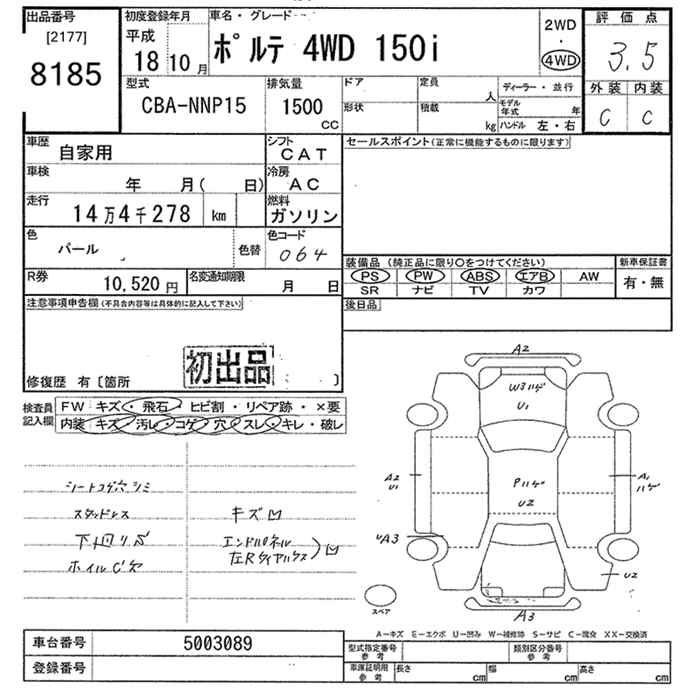 出品番号 初度登録年月 車名・グレード
[2177] 平成 ポルテ 4WD 150i
8185 18 10 月
2WD
・
4WD
評価点
3.5
外装 内装
C C
型式 排気量 ドア 定員 人 ディーラー・並行
CBA-NNP15 1500 CC 形状 積載 kg モデル年式 年
ハンドル 左・右
車歴 自家用 シフト CAT
セールスポイント(正常に機能するものに限ります)
車検 年 月( 日) 冷房 AC
走行 14万4千278 km 燃料 ガソリン
色 パール 色替 色コード 064
R券 10,520 円 名変通知期限 月 日
装備品 (純正品に限り○をつけてください) 新車保証書
PS PW ABS エアB AW 有・無
SR ナビ TV カワ
注意事項申告欄(不具合内容等は具体的に記入して下さい)
後日品
初出品
修復歴 有〔箇所 〕
検査員記入欄
FW キズ・飛石・ヒビ割・リペア跡・×要
内装・キズ・汚レ・コゲ・穴・スレ・キレ・破レ
シートコゲ穴シミ
スタッドレス
下回りサビ
キズ凹
エンドパネル
左Rタイヤハウス
凹
A2
W3ハゲ
U1
A2
U1
Pハゲ
U2
A1
ハゲ
UA3
U2
A3
スペア
A―キズ E―エクボ U―凹み W―補修跡 S―サビ C―腐食 XX―交換済
車台番号 5003089
登録番号
型式指定番号 参考 類別区分番号 参考
車庫証明用 参考 長さ cm 幅 cm 高さ cm